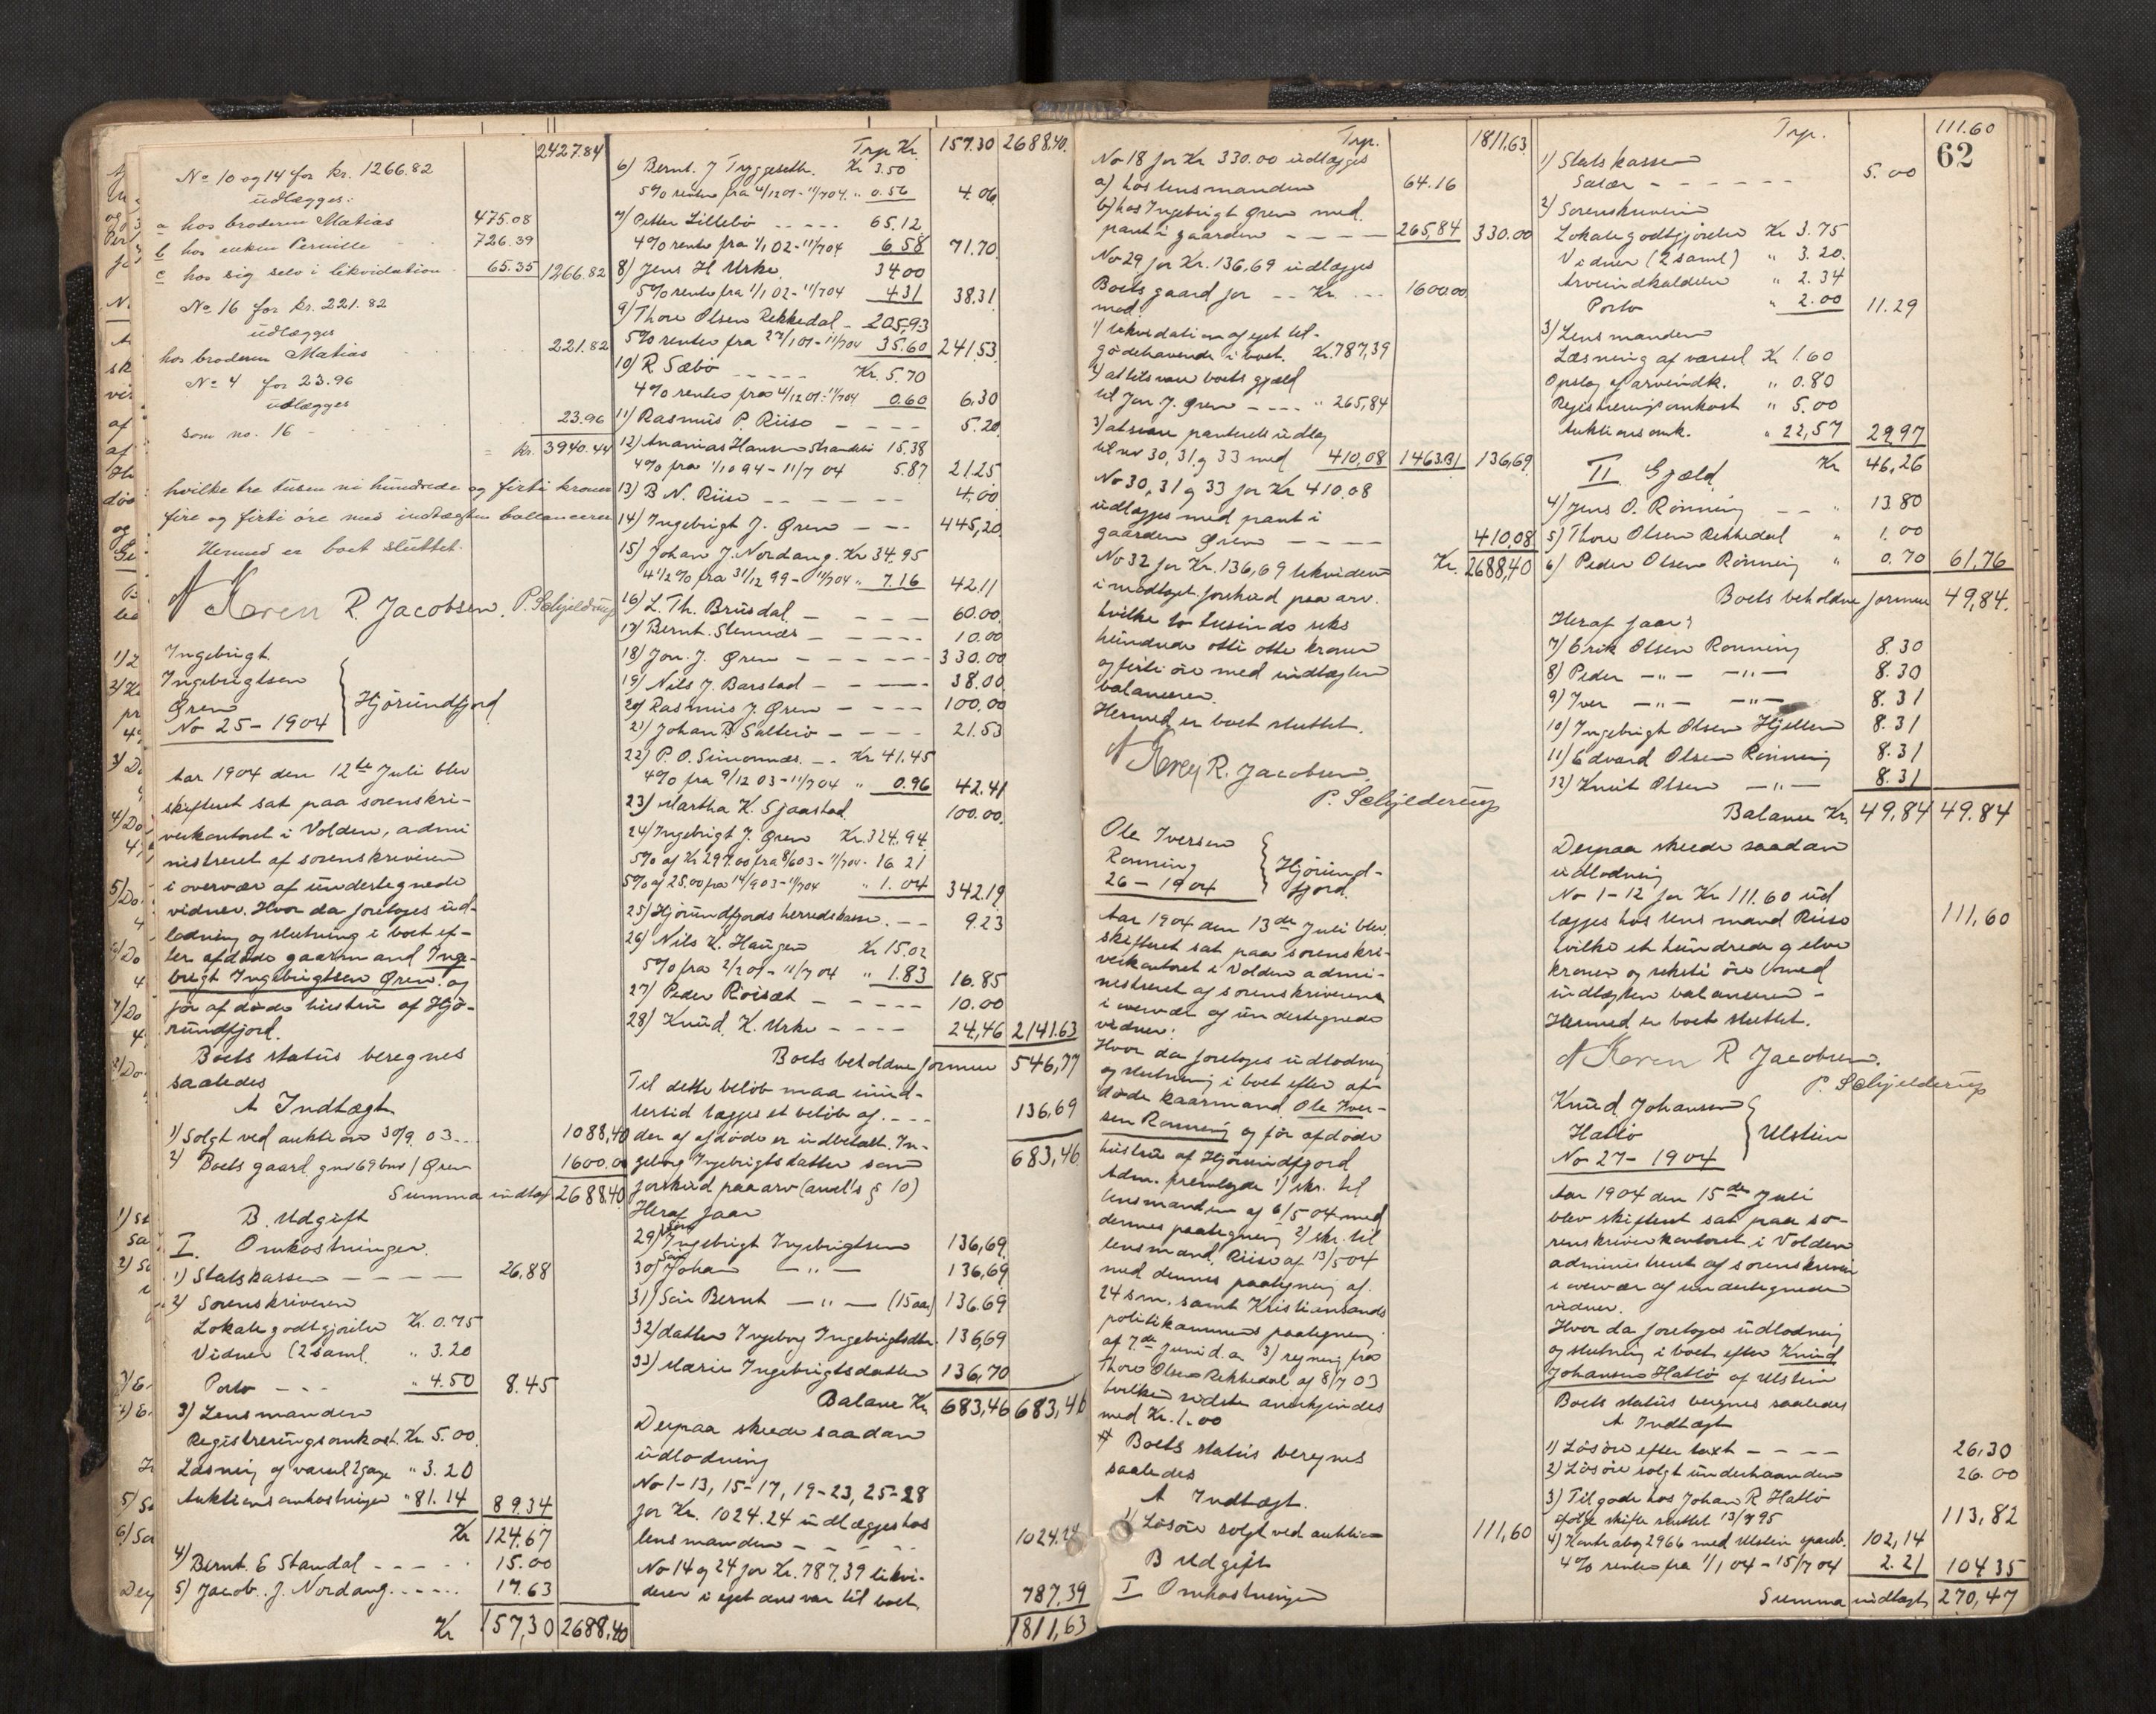 2427.84
No 10 og 14 for kr. 1266.82
udlægges:
a hos broderen Matias 475.08
b hos enken Pernille 726.39
c hos sig selv i likvidation 65.35 1266.82
No 16 for kr. 221.82
udlægges
hos broderen Matias 221.82
No 4 for 23.96
udlægges
som no. 16 - 23.96
= kr. 3940.44
hvilke tre tusen ni hundrede og firti kroner
fire og firti öre med indtægten ballancerer
Hermed er boet sluttet.
N Koren R. Jacobsen. P. Schjelderup
Ingebrigt
Ingebrigtsen
Ören
No 25 - 1904
Hjörundfjord
Aar 1904 den 12te Juli blev
skifteret sat paa sorenskri-
verkontoret i Volden, admi
nistreret af sorenskriveren
i overvær af undertegnede
vidner. Hvor da foretoges ud-
lodning og slutning i boet ef-
ter afdöde gaarmand Inge-
brigt Ingebrigtsen Ören og
för afdöde hustru af Hjö-
rundfjord.
Boets status beregnes
saaledes
A Indtægt
1) Solgt ved auktion 30/9 03 1088,40
2) Boets gaard gnr 69 bnr 1 Ören 1600.00
Summa indtægt 2688.40
B. Udgift
I. Omkostninger.
1) Statskassen - - - - 26,88
2) Sorenskriveren
Lokalegodtgjörelse Kr. 0.75
Vidner (2 saml. " 3.20
Porto - - - " 4.50 8.45
3) Lensmanden
Registreringsomkost. Kr. 5.00
Læsning af varsel 2 gange " 3.20
Auktionsomkostninger " 81.14 89.34
Kr 124.67
4) Bernt E Standal - - - - 15.00
5) Jacob. J. Nordang - - - - 17.63
Kr 157,30 2688,40
Trp Kr. 157.30 2688.40.
6) Bernt. J Tryggeseth. Kr 3.50
5% renter fra 4/12 01 - 11/7 04. " 0.56 4.06
7) Petter Lillebö - - - - - 65.12
4% rente fra 1/1 02 - 11/7 04 6.58 71.70
8) Jens H Urke. 34 00
5% rente fra 1/1 02 - 11/7 04 4 31 38.31
9) Thore Olsen Rekkedal - 205.93
5% renter fra 27/1 01 - 11/7 04 35.60 241.53
10) R. Sæbö - - - - - Kr. 5.70
4% renter fra 4/12 01 - 11/7 04 0.60 6.30
11) Rasmus P. Riise - - - - 5.20
12) Ananias Hansen Strandebö 15.38
4% fra 1/10 94 - 11/7 04 5.87 21.25
13) B N. Riise - - - - - - 4.00
14) Ingebrigt J. Ören - - - 445,20
15) Johan J. Nordang. Kr 34.95
4 1/2% fra 31/12 99 - 11/7 04 " 7.16 42.11
16) L. Th. Brusdal. - - - - 60.00.
17) Bernt. Stennes - - - - - 10.00
18) Jon. J. Ören - - - - - - 330.00
19) Nils J. Barstad - - - - 38.00.
20) Rasmus J. Ören - - - - 100.00
21) Johan B Sætterö - - - - 21.53
22) P. O. Simonnes. - - Kr 41.45
4% fra 9/12 03 - 11/7 04 " 0.96 42.41
23) Martha K. Sjaastad 100.00.
24) Ingebrigt J. Ören Kr. 324.94
5% af Kr 297.00 fra 8/6 03 - 11/7 04 - 16 21
5% af 25.00 fra 14/9 03 - 11/7 04 " 1. 04 342.19
25) Hjörundfjords herredskasse. - - 9.23
26) Nils K. Haugen Kr 15.02
5% fra 2/2 01 - 11/7 04 " 1.83 16.85
27) Peder Röisæt - - - - - 10.00
28) Knud. K. Urke - - - - 24,46 2141.63
Boets beholdne formue 546,77
Til dette belöb maa imid-
lertid lægges et belöb af. - - - 136,69
der af afdöde er udbetalt. In-
geborg Ingebrigtsdatter som 683,46
forskud paa arv (arvel's § 10)
Heraf faar
29) Sön Ingebrigt Ingebrigtsen 136,69.
30) Sön Johan - " - 136,69
31) Sön Bernt - " - (15 aar) 136.69
32) datter Ingeborg Ingebrigtsdtr. 136,69
33) Marie Ingebrigtsdatter 136,70
Balance Kr 683,46 683,46
Derpaa skede saadan
udlodning
No 1-13, 15-17, 19-23, 25-28
for Kr. 1024.24 udlægges hos
lensmanden - - - - - 1024.24
No 14 og 24 for Kr. 787.39 likvi-
derer i eget ansvar til boet. 787,39
1811,63
Trp. 1811,63
No 18 for Kr 330.00 udlægges
a) hos lensmanden 64.16
b) hos Ingebrigt Ören med.
pant i gaarden - - - - 265,84 330.00
No 29 for Kr. 136.69 udlægges
Boets gaard for - - Kr. - - - 1600.00
med.
1) likvidation af eget til-
godehavende i boet. Kr. 787,39
2) at tilsvare boets gjæld
til Jon. J. Ören - - - - " 265,84
3) at svare pantuets udlæg
til nr 30, 31 og 33 med 410,08 1463.31 136,69.
No 30, 31 og 33 for Kr 410.08
udlægges med pant i
gaarden Ören - - - - 410,08
No 32 for Kr. 136,69 likvideres Kr. 2688,40
i modtaget forskud paa arv.
hvilke to tusinde seks
hundrede otti otte kroner
og firti öre med indtægten
balancerer.
Hermed er boet sluttet.
N Koren R. Jacobsen.
P. Schjelderup
Ole Iversen
Rönning
26 - 1904
Hjörund-
fjord.
Aar 1904 den 13de Juli blev
skifteret sat paa sorenskri-
verkontoret i Volden admi-
nistreret af sorenskriveren
i overvær af undertegnede
vidner:
Hvor da foretoges udlodning
og slutning i boet efter af-
döde kaarmand Ole Iver-
sen Rönning og för afdöde
hustru af Hjörundfjord
Adm. fremlagde 1) skr. til
lensmanden af 6/5 04 med
dennes paategning 2) skr. til
lensmand. Riise af 13/5 - 04
med dennes paategning af.
24 s.m. samt Kristiansands
politikammers paategning
af 7de juni d.a. 3) regning fra
Thore Olsen Rekkedal af 8/7 03
hvilken sidste anerkjendes
med Kr. 1.00
Boets status beregnes
saaledes
A Indtægt.
1) Lösöre solgt ved auktion 111,60
B Udgift
I Omkostninger
Trp. 111.60
62
1) Statskassen
Salær - - - - - - 5.00
2) Sorenskriveren
Lokalegodtgjörelse Kr 3.75
Vidner (2 saml) " 3.20.
Arveindkaldelse " 2.34
Porto " 2.00 11.29
3) Lensmanden
Læsning af varsel Kr 1.60
Opslag af arveindk. " 0.80
Registreringsomkost " 5.00
Auktionsomk. " 22,57 29.97
II Gjæld. Kr 46,26
4) Jens O. Rönning - - " 13.80
5) Thore Olsen Rekkedal " 1.00
6) Peder Olsen Rönning " 0.70 61,76
Boets beholdne formue 49,84.
Heraf faar:
7) Erik Olsen Rönning 8.30
8) Peder - " - - " - 8.30
9) Iver - " - - " - 8.31
10) Ingebrigt Olsen Hjellen 8.31
11) Edvard Olsen Rönning 8.31
12) Knut Olsen - " - 8.31
Balance Kr. 49,84 49.84
Derpaa skede saadan
udlodning
No 1-12 for Kr 111.60 ud
lægges hos lensmand Riise 111,60
hvilke et hundrede og elve
kroner og seksti öre med
indtægten balancerer -
Hermed er boet sluttet.
N Koren R Jacobsen.
P. Schjelderup
Knud Johansen
Hatlö
No 27 - 1904
Ulstein
Aar 1904 den 15de Juli
blev skifteret sat paa so-
renskriverkontoret i Volden
administreret af sorenskriveren
i overvær af undertegnede
vidner.
Hvor da foretoges udlodning
og slutning i boet efter Knud
Johansen Hatlö af Ulstein
Boets status beregnes saaledes
A Indtægt
1) Lösöre efter taxt - - - - 26,30
2) Lösöre solgt underhaanden 26.00
3) Tilgode hos Johan R Hatlö
ifölge skifte sluttet 13/7 95 113,82
4) Kontrabog 2966 med Ulstein spareb. 102,14
4% renter fra 1/1 04 - 15/7 04 2.21 104.35
Summa indtægt 270,47